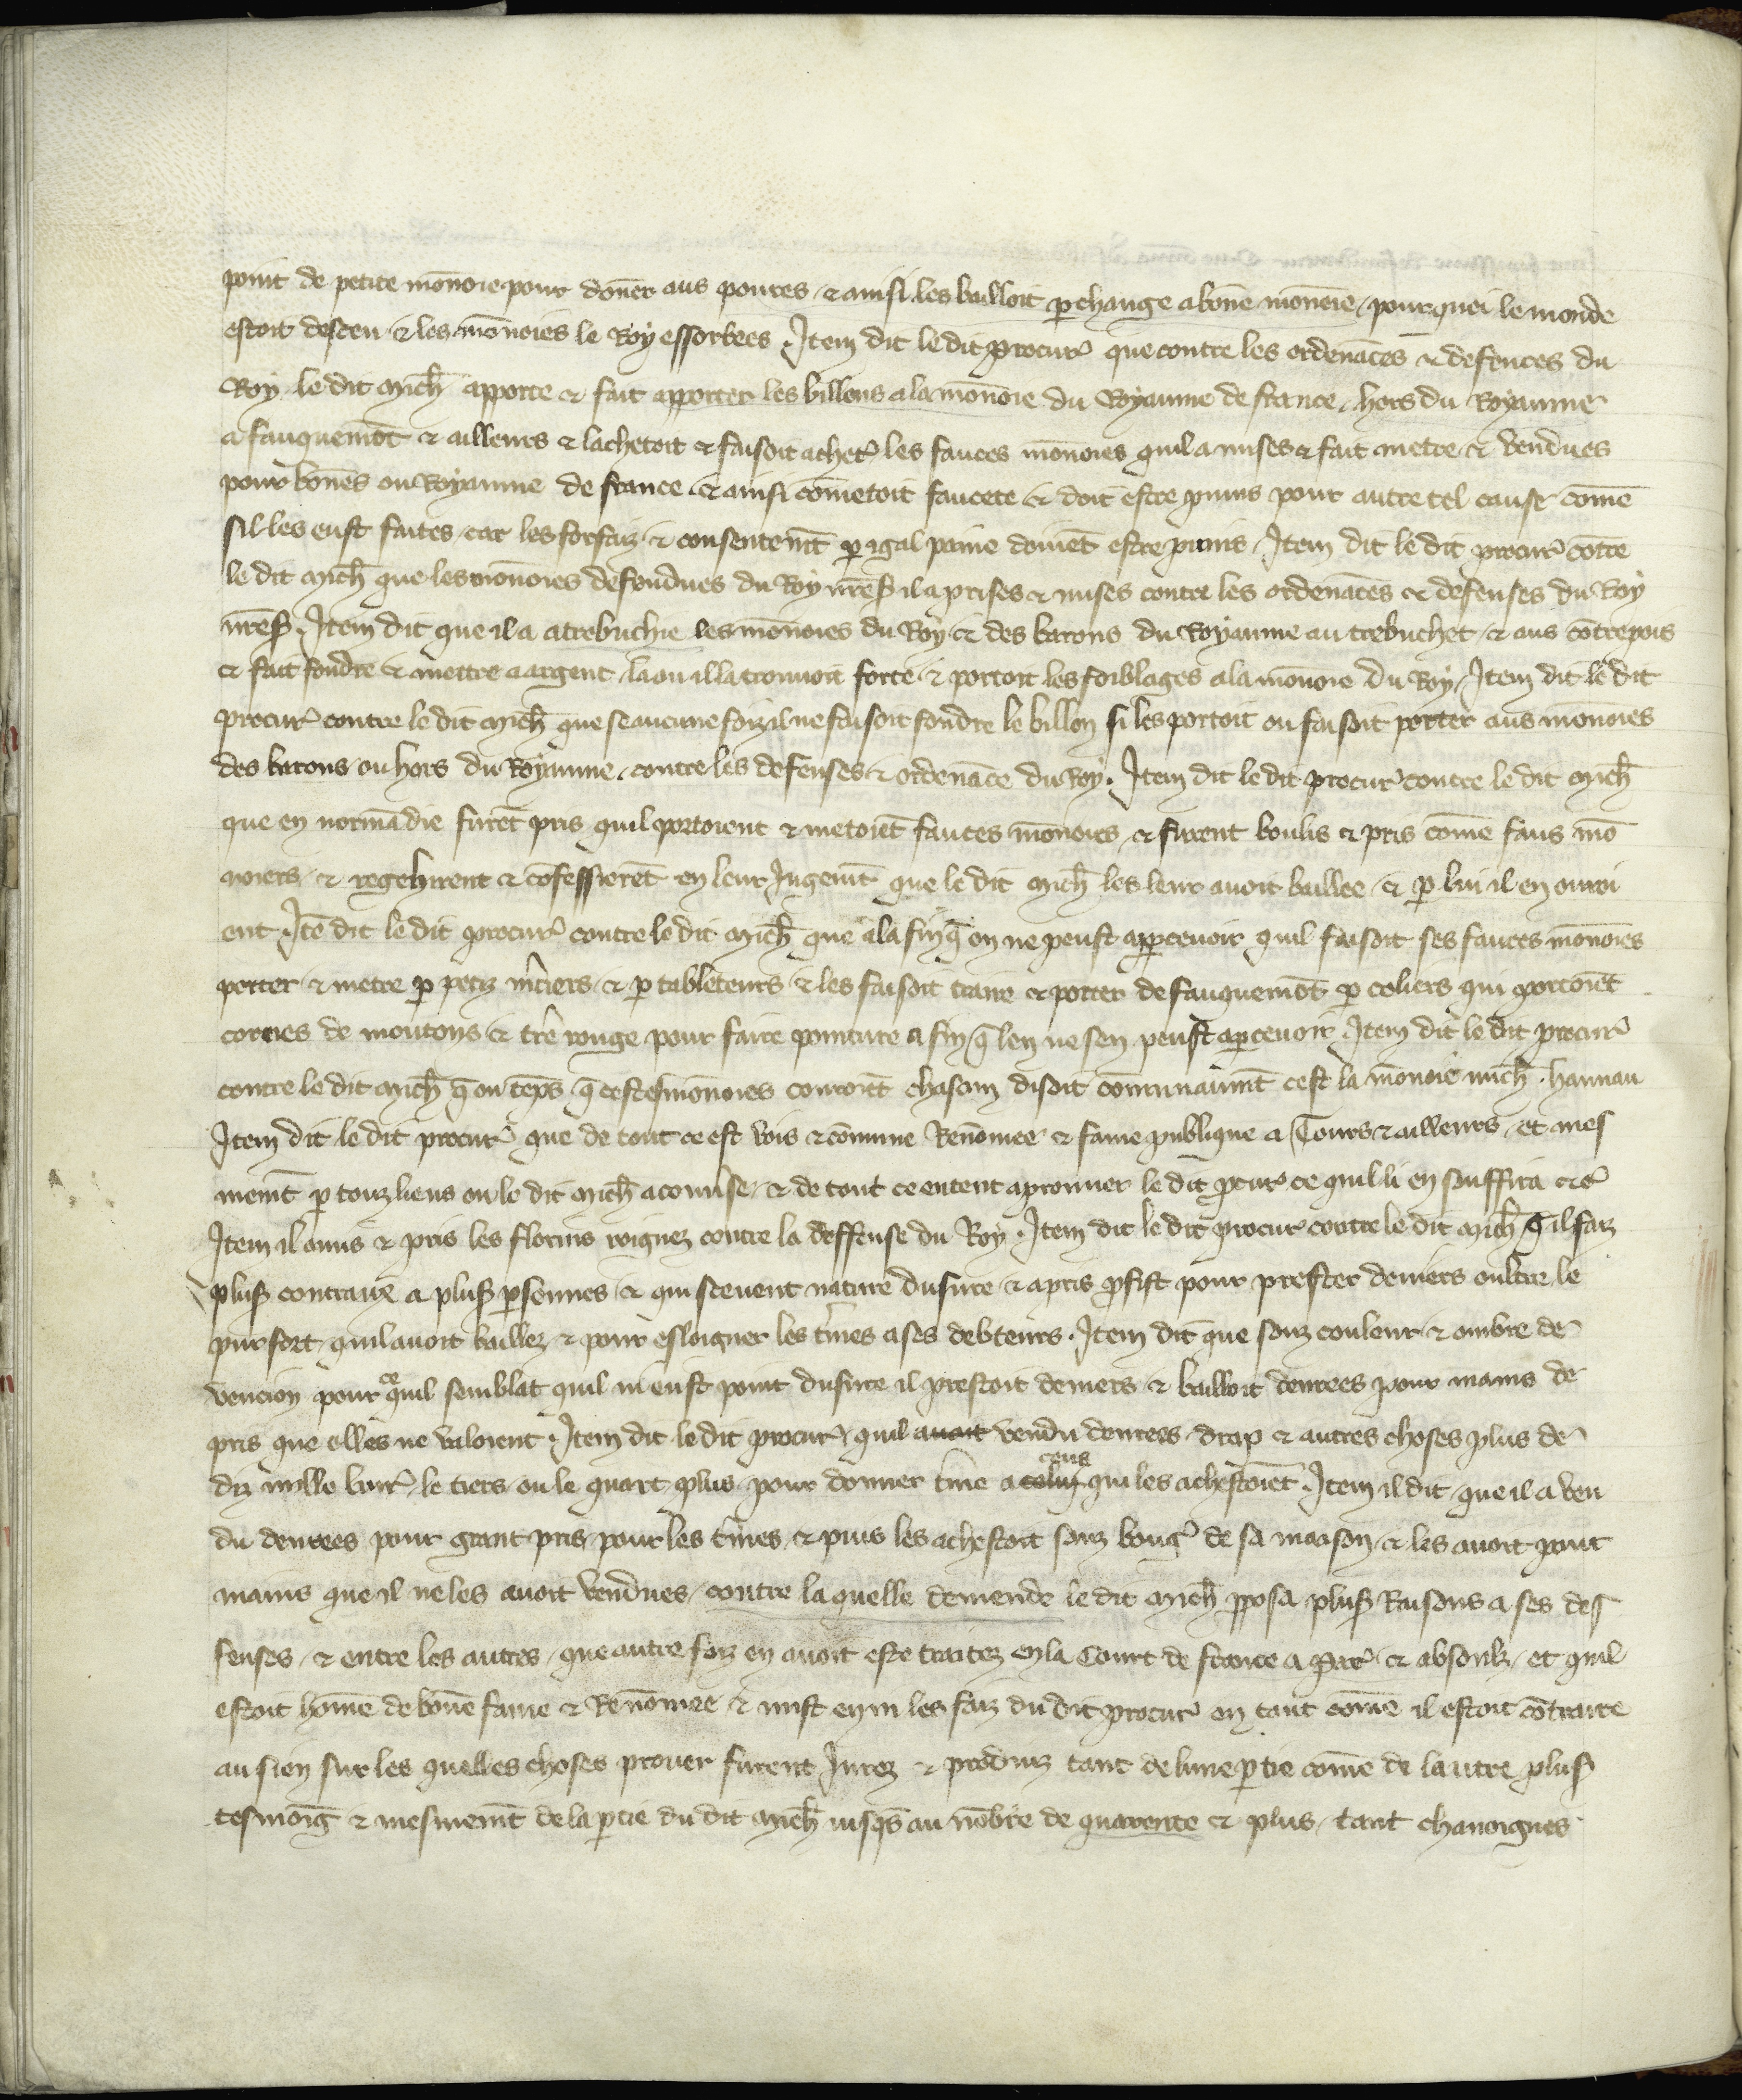 point de petite mōnoie pour dōner aus poures ⁊ ainsi les bailloit p̱ change a bonē mōnoie / pour quei le monde
estoit desceu ⁊ les mōnoies le Roy essorbees . Item dit le dit procur̾ que contre les ordenāces ⁊ defences du
Roy / le dit mich̄ apporte ⁊ fait apporter les billons a la mōnoie du Royaume de france / hors du Royaume
a fauquemōt ⁊ ailleurs ⁊ lachetoit ⁊ faisoit achet̾ les fauces mōnoies quil a mises ⁊ fait metre ⁊ vendues
pour bones ou Royaume de france . ⁊ ainsi cōmetoit faucete ⁊ doit estre punis pour autre tel cause cōme
sil les eust faites / car les forfaiz ⁊ consentemt̄ p̱ igal paine doiuēt estre punis . Item dit le dit procur̾ cōtre
le dit mich̄ que les mōnoies defendues du Roy nr̄eß il a prises ⁊ mises contre les ordenāces ⁊ defenses du Roy
nr̄eß . Item dit que il a atrebuchie les mōnoies du Roy ⁊ des barons du Royaume au trebuchet / ⁊ aus cōtrepois
⁊ fait fondre ⁊ mettre a argent / la ou il la trouuoit forte ⁊ portoit les foiblages a la mōnoie du Roy / Item dit le dit
procur̾ contre le dit mich̄ que se aucune foiz il ne faisoit fondre le billon si les portoit ou faisoit porter aus mōnoies
des barons / ou hors du Royaume / contre les defenses ⁊ ordenāce du Roy . Item dit le dit procur̾ contre le dit mich̄
que en normādie furēt pris quil portoient ⁊ metoiēt fauces mōnoies / ⁊ furent boulis ⁊ pris cōme faus mō
noiers / ⁊ regehirent ⁊ cōfessierēt en leur Jugemt̄ que le dit mich̄ les leur auoit baillee / ⁊ p̱ lui il en ouuroi
ent . Itē dit le dit procur̾ contre le dit mich̄ que a la fin q̄ on ne peust appceuoir quil faisoit ses fauces mōnoies
porter ⁊ metre p̱ petiz mciers ⁊ p̱ tableteurs ⁊ les faisoit traire ⁊ porter de fauquemōt p̱ coliers qui portoiēt
cornes de moutons ⁊ tr̄e rouge pour faire pointure a fin q̄ len ne sen peust apceuoir . Item dit le dit procur̾
contre le dit mich̄ q̄ ou tēps q̄ cestes mōnoies couroiēt chascun disoit cōmunaumt̄ cest la mōnoie mich̄ . hannau
Item dit le dit procur̾ que de tout ce est vois ⁊ cōmune Renōmee ⁊ fame publique a Tours ⁊ ailleurs / et mes
memt̄ p̱ touz lieus ou le dit mich̄ a conuse / ⁊ de tout ce entent a prouuer le dit p̱cur̾ ce quil li en souffira ⁊c̾
Item il a mis ⁊ pris les florins roignez contre la deffense du Roy . Item dit le dit procur̾ contre le dit mich̄ q̄ il faiz
plusß contraux a plusß psonnes / ⁊ qui sceuent nature dusure ⁊ a pris p̱fist pour prester deniers oultre le
pur sort / quil auoit baillez ⁊ pour esloigner les tmes a ses debteurs . Item dit que souz couleur ⁊ ombre de
vencion pour quil semblat quil ni eust point dusure il prestoit deniers ⁊ bailloit denrees pour mains de
pris que elles ne valoient . Item dit le dit procur̾ / quil auoit vendu denrees / drap ⁊ autres choses plus de
diz mille liur̾ / le tiers ou le quart plus / pour donner tme a celuy ceus qui les achestoiēt . Item il dit / que il a ven
du denrees pour grant pris / pour les tmes / ⁊ puis les achestoit souz boug̾ de sa maison / ⁊ les auoit pour
mains que il ne les auoit vendues / contre la quelle demende le dit mich̄ pposa plusß Raisons a ses def
fenses / ⁊ entre les autres / que autre foiz en auoit este traitez en la Court de france a par̾ ⁊ absoulz / et quil
estoit hōme de bonē fame ⁊ Renōmee ⁊ mist en ni les faiz du dit procur̾ en tant cōme il estoit cōtraire
au sien sur les quelles choses prouer furent Jurez ⁊ produiz tant de lune p̱tie cōme de lautre plusß
tesmoīg ⁊ mesmemt̄ de la p̱tie du dit mich̄ iusqs au nōbre de quarente ⁊ plus / tant chanoignes